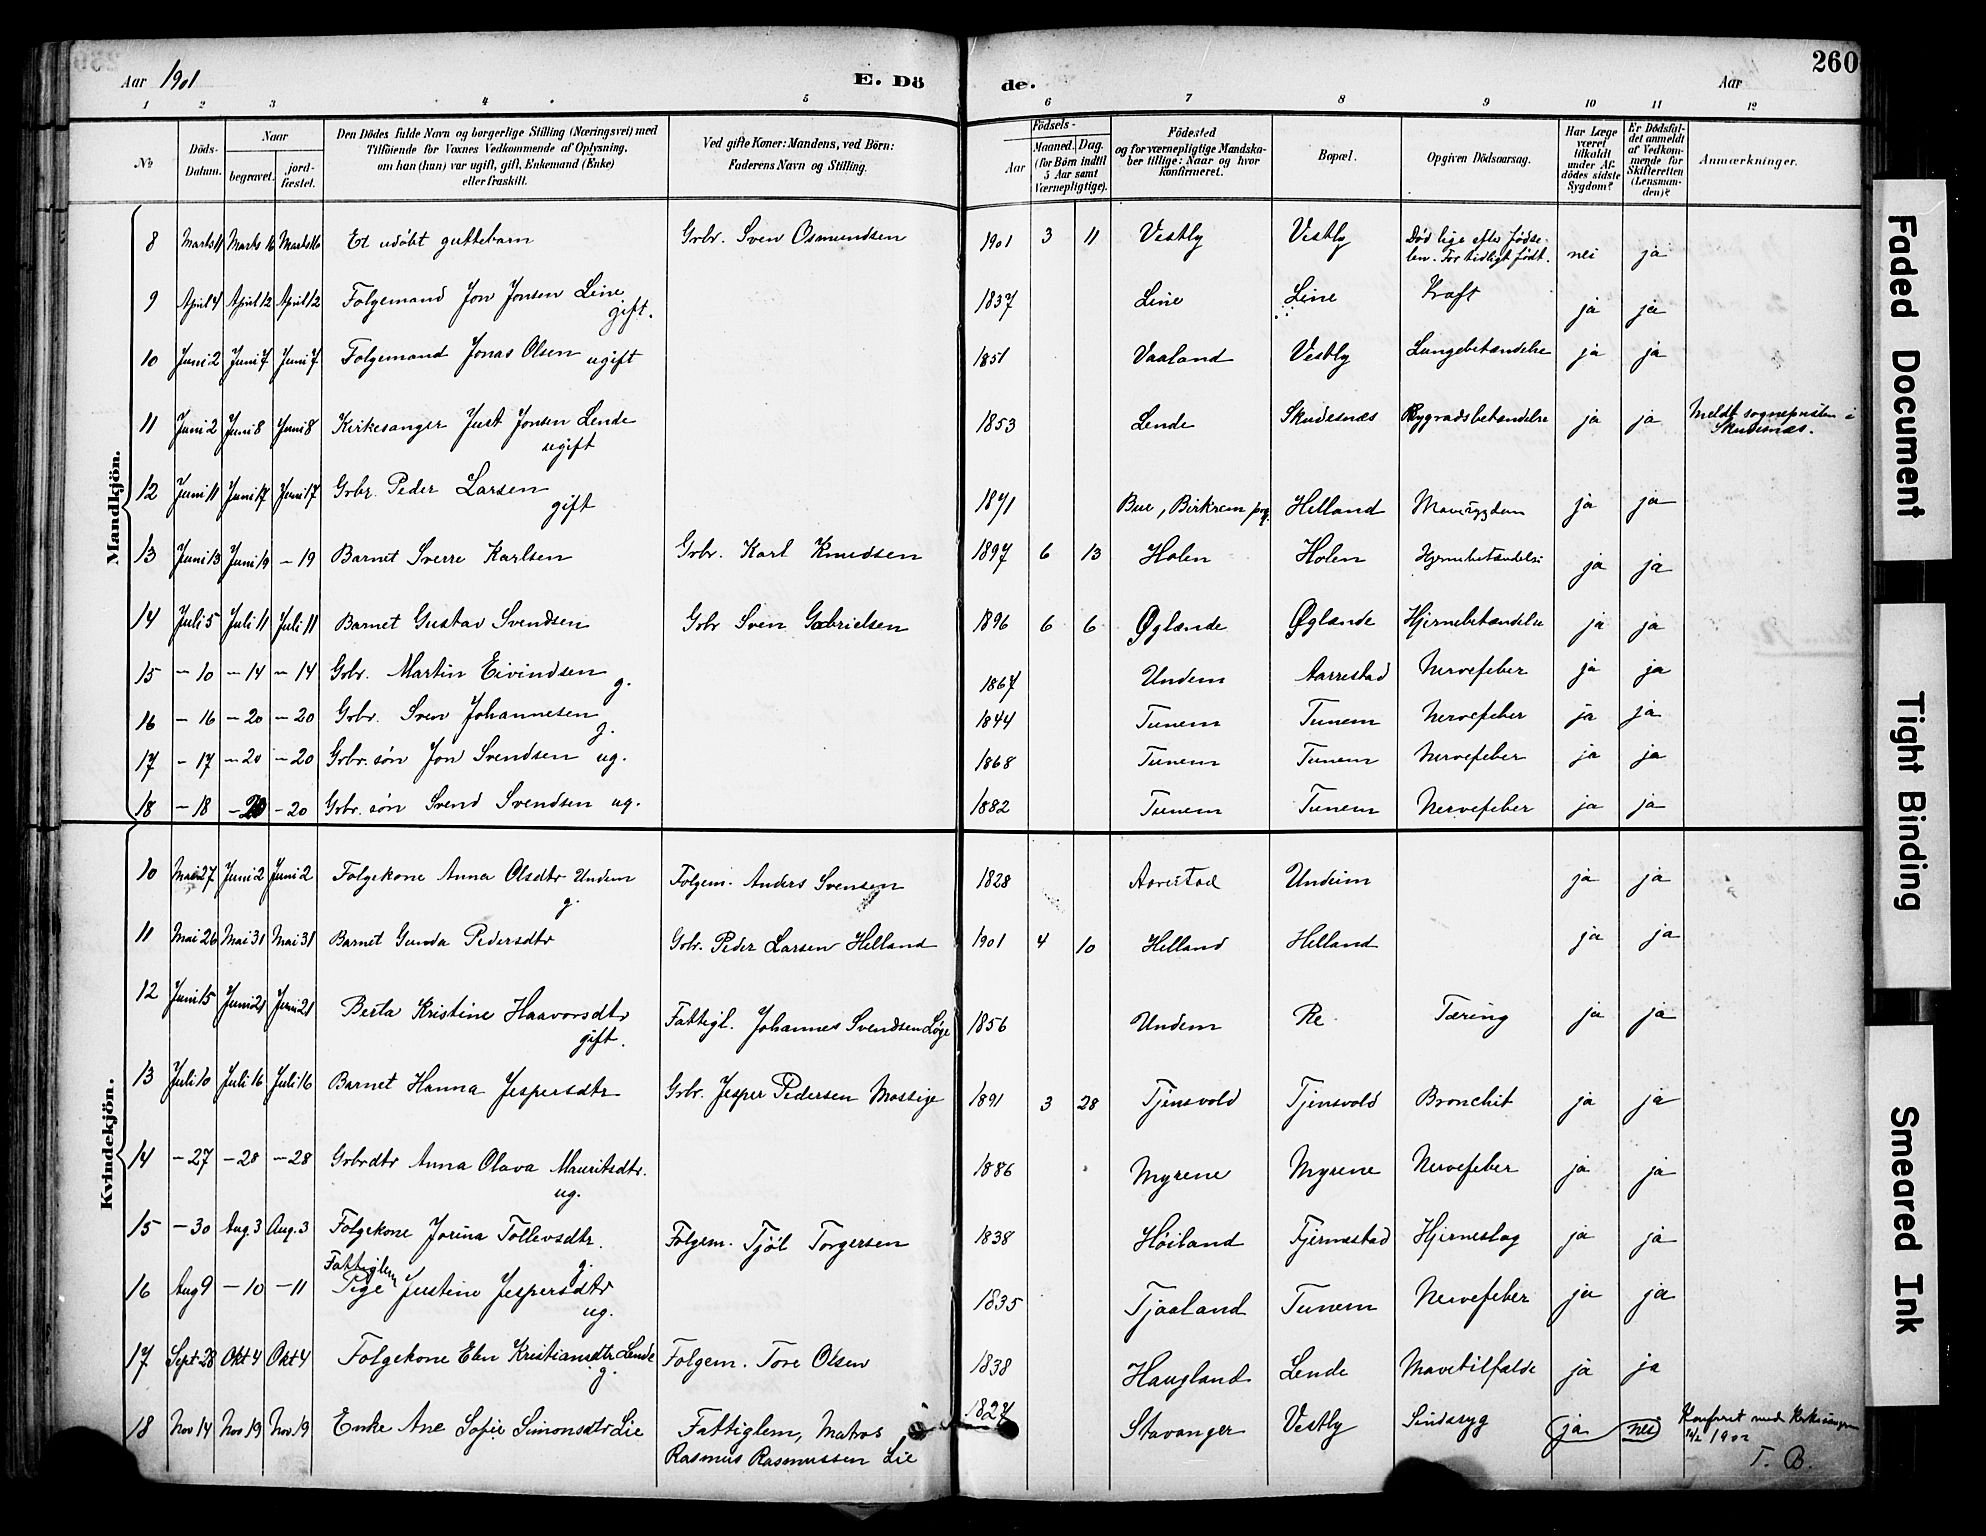 Aar 1901 E. Döde. Aar 260
1 2 3 4 5 6 7 8 9 10 11 12
No
Döds-Datum.
Naar
begravet.
jordfæstet.
Den Dödes fulde Navn og borgerlige Stilling (Næringsvei) med
Tilföiende for Voxnes Vedkommende af Oplysning,
om han (hun) var ugift, gift, Enkemand (Enke)
eller fraskilt.
Ved gifte Koner: Mandens, ved Börn:
Faderens Navn og Stilling.
Födsels-
Aar
Maaned. Dag.
(for Börn indtil
5 Aar samt
Værnepligtige).
Födested
og for værnepligtige Mandskaber tillige: Naar og hvor
konfirmeret.
Bopæl.
Opgiven Dödsaarsag.
Har Læge
været
tilkaldt
under Afdödes sidste
Sygdom?
Er Dödsfaldet anmeldt
af Vedkommende for
Skifteretten
(Lensmanden)?
Anmærkninger.
Mandkjön.
8 Marts 11 Marts 16 Marts 16 Et udöbt guttebarn Grbr. Sven Osmundsen 1901 3 11 Vestly Vestly Död lige efter fødselen. For tidligt født. nei ja
9 April 4 April 12 April 12 Folgemand Jon Jonsen Line gift. 1837 Line Line Kræft ja ja
10 Juni 2 Juni 7 Juni 7 Folgemand Jonas Olsen ugift 1851 Vaaland Vestly Lungebetændelse ja ja
11 Juni 2 Juni 8 Juni 8 Kirkesanger Just Jonsen Lende ugift 1853 Lende Skudesnæs Rygradsbetændelse ja ja Meldt sognepresten i Skudesnæs.
12 Juni 11 Juni 17 Juni 17 Grbr. Peder Larsen gift 1871 Bue, Birkrem prg. Helland Mavesygdom ja ja
13 Juni 13 Juni 19 – 19 Barnet Sverre Karlsen Grbr. Karl Knudsen 1897 6 13 Holen Holen Hjernebetændelse ja ja
14 Juli 5 Juli 11 Juli 11 Barnet Gustav Svendsen Grbr Sven Gabrielsen 1896 6 6 Øglænde Øglænde Hjernebetændelse ja ja
15 – 10 – 14 – 14 Grbr. Martin Eivindsen g. 1867 Undem Aarrestad Nervefeber ja ja
16 – 16 – 20 – 20 Grbr. Sven Johannesen g. 1844 Tunem Tunem Nervefeber ja ja
17 – 17 – 20 – 20 Grbr. søn Jon Svendsen ug. 1868 Tunem Tunem Nervefeber ja ja
18 – 18 – 20 – 20 Grbr. søn Svend Svendsen ug. 1882 Tunem Tunem Nervefeber ja ja
Kvindekjön.
10 Mai 27 Juni 2 Juni 2 Folgekone Anna Olsdtr Undem g. Folgem. Anders Svensen 1828 Aarestad Undeim ja ja
11 Mai 26 Mai 31 Mai 31 Barnet Gunda Pedersdtr Grbr. Peder Larsen Helland 1901 4 10 Helland Helland ja ja
12 Juni 15 Juni 21 Juni 21 Berta Kristine Haavorsdtr gift. Fattigl. Johannes Svendsen Løge 1856 Undem Re Tæring ja ja
13 Juli 10 Juli 16 Juli 16 Barnet Hanna Jespersdtr Grbr. Jesper Pedersen Mossige 1891 3 28 Tjensvold Tjensvold Bronchit ja ja
14 – 27 – 28 – 28 Grbrdtr Anna Olava Mauritsdtr. ug. 1886 Myrene Myrene Nervefeber ja ja
15 – 30 Aug. 3 Aug. 3 Folgekone Jorina Tollevsdtr. g. Folgem. Tjöl Torgersen 1838 Höiland Fjermestad Hjerneslag ja ja
16 Aug 9 – 10 – 11 Fattiglem Pige Justine Jespersdtr ug. 1835 Tjaaland Tunem Nervefeber ja ja
17 Sept 28 Okt 4 Okt 4 Folgekone Elen Kristiansdtr Lende g. Folgem. Tore Olsen 1838 Haugland Lende Mavetilfælde ja ja
18 Nov 14 Nov 19 Nov. 19 Enke Ane Sofie Simonsdtr Lie Fattiglem, Matros Rasmus Rasmussen Lie 1827 Stavanger Vestly Sindssyg ja nei Konfereret med Kirkesangeren 1902
T. B.
Faded Document
Tight Binding
Smeared Ink